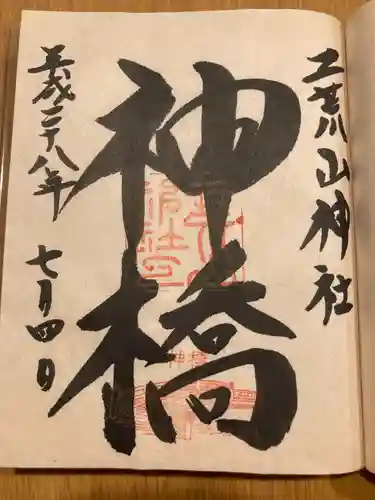 二荒山神社
神橋
平成二十八年
七月四日